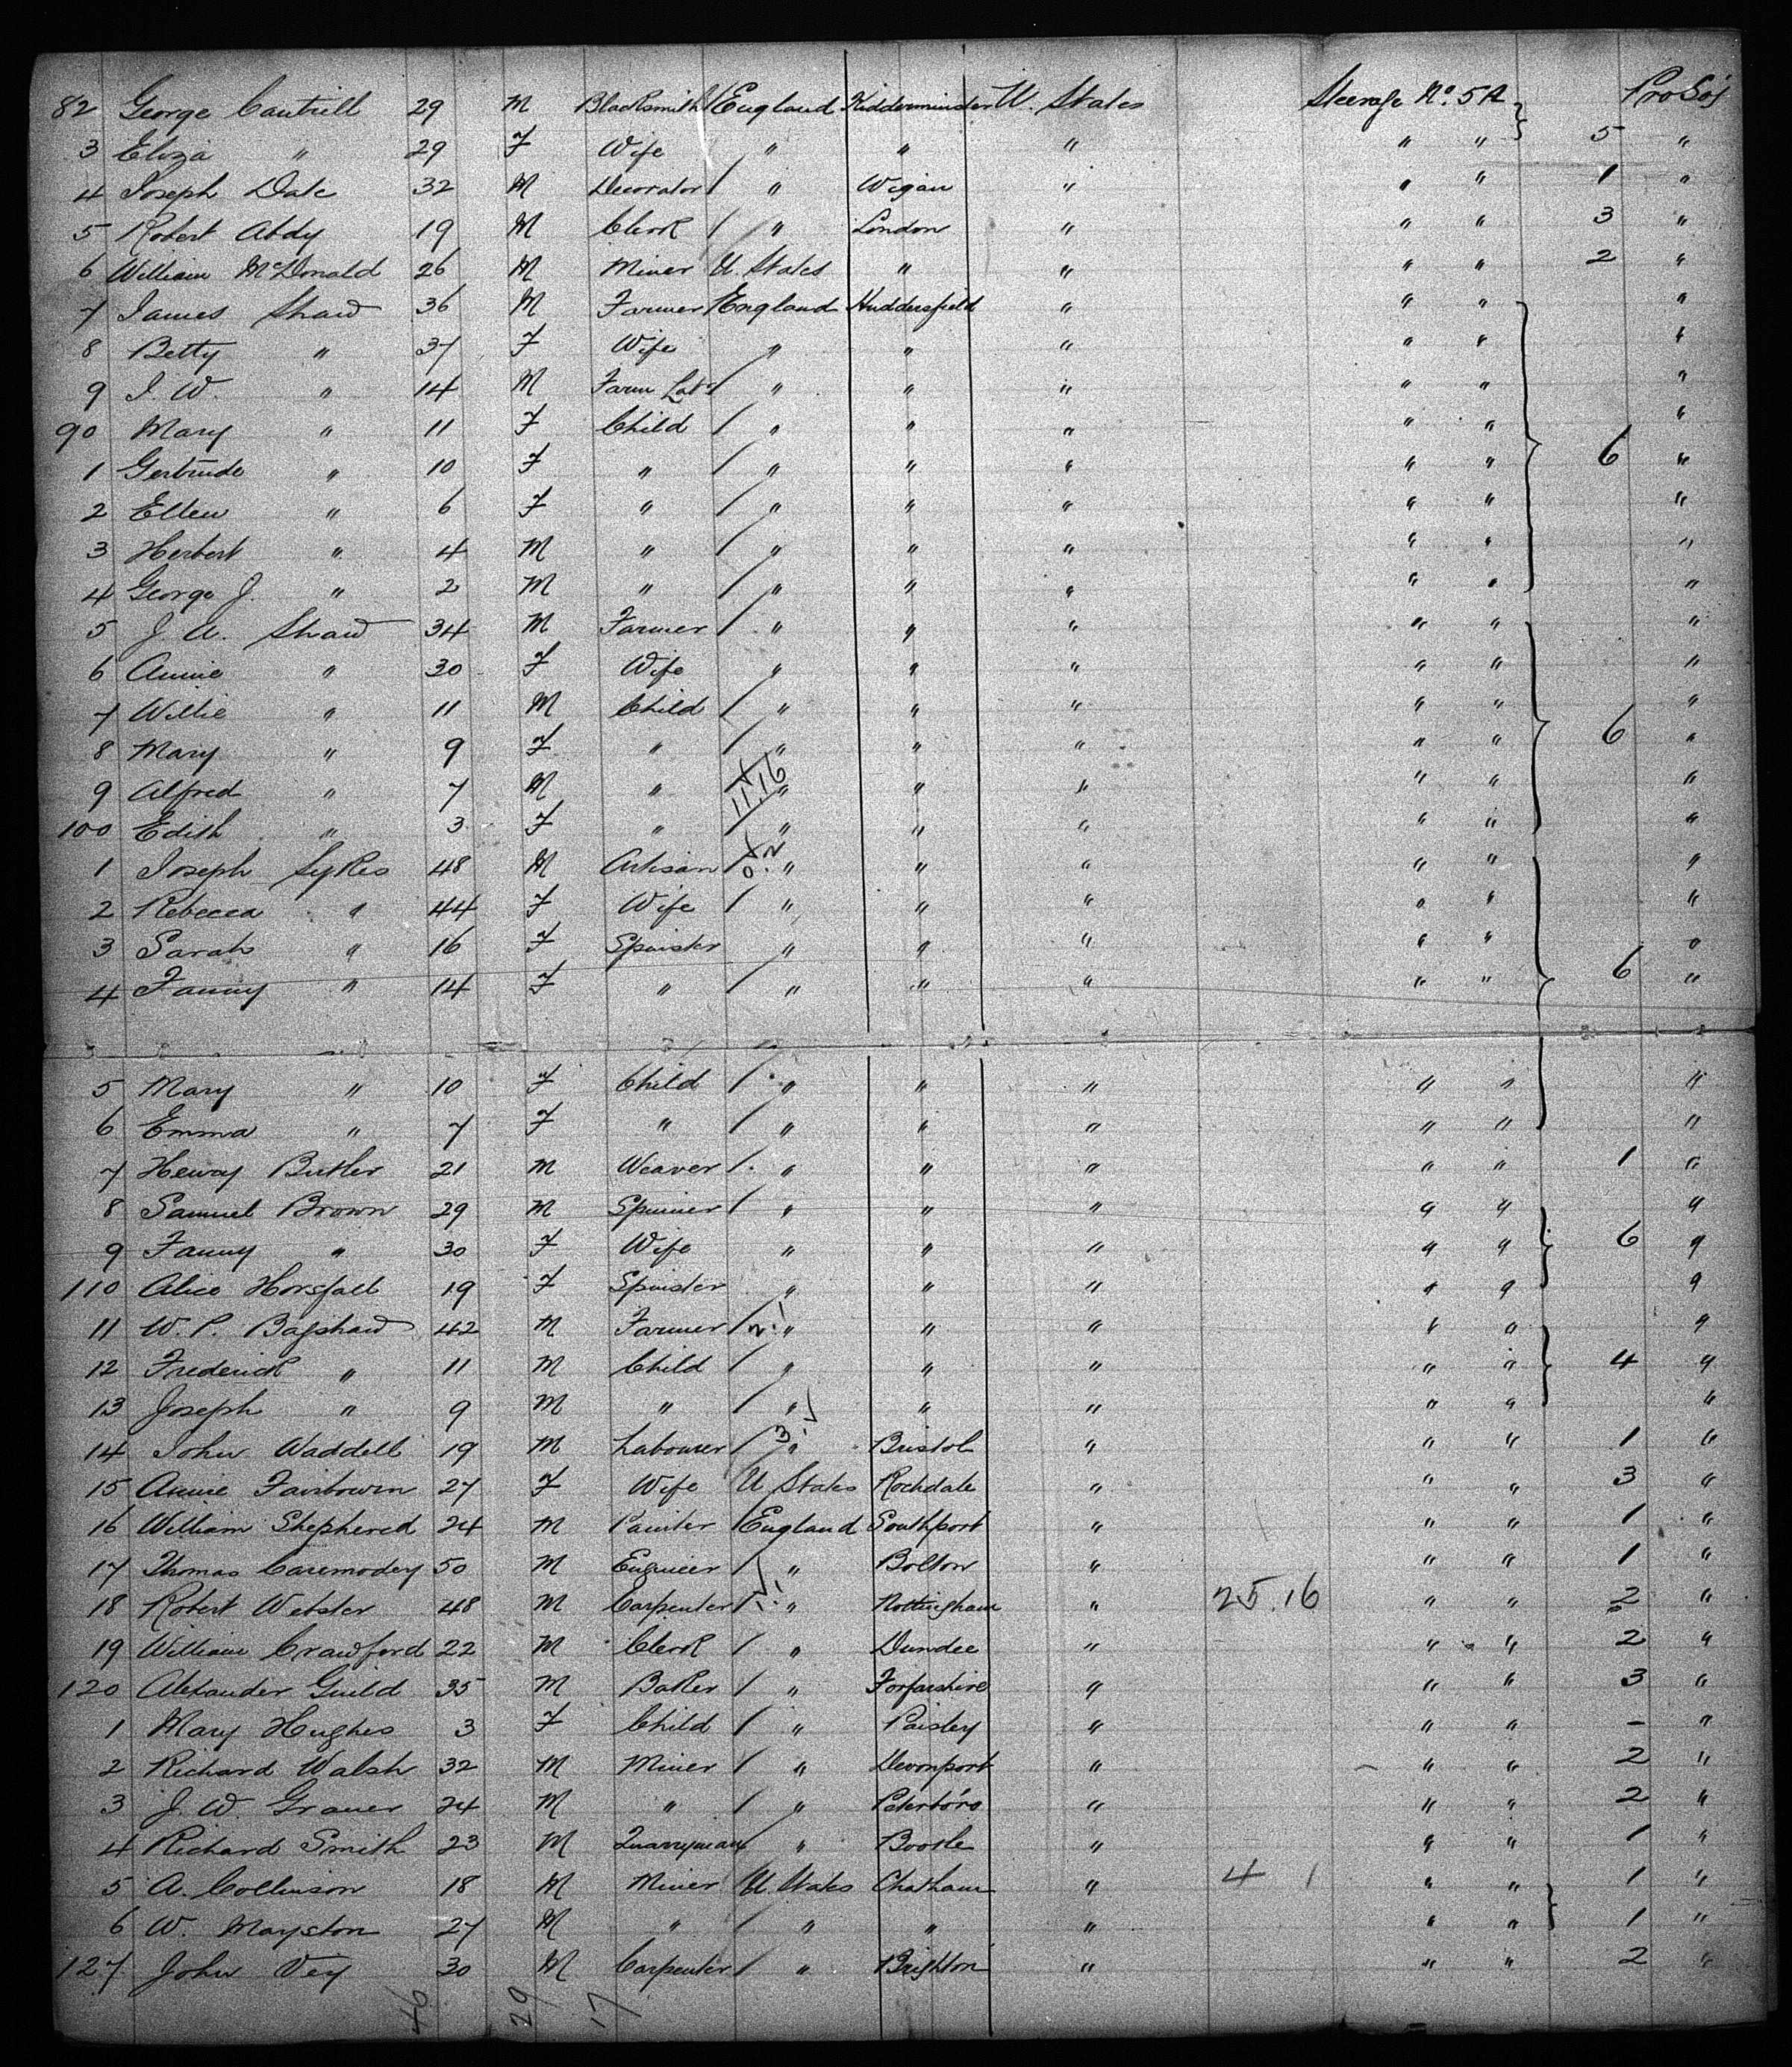 82 George Cantrill 29 M Blacksmith / England Kidderminster U. States Steerage No. 5A } Pro Soj
3 Eliza " 29 F Wife " " " " " 5 "
4 Joseph Dale 32 M Decorator / " Wigan " " " 1 "
5 Robert Abdy 19 M Clerk / " London " " " 3 "
6 William McDonald 26 M Miner U. States " " " " 2 "
7 James Shaw 36 M Farmer / England Huddersfield " " " "
8 Betty " 37 F Wife " " " " " "
9 J. W. " 14 M Farm Labr / " " " " " "
90 Mary " 11 F Child / " " " " " "
1 Gertrude " 10 F " / " " " " " 6 "
2 Ellen " 6 F " / " " " " " "
3 Herbert " 4 M " / " " " " " "
4 George J. " 2 M " / " " " " " "
5 J. A. Shaw 34 M Farmer / " " " " " "
6 Annie " 30 F Wife " " " " " "
7 Willie " 11 M Child / " " " " " "
8 Mary " 9 F " / " " " " " 6 "
9 Alfred " 7 M " 11.16 " " " " " "
100 Edith " 3 F " / " " " " " "
1 Joseph Sykes 48 M Artisan / 0.2 " " " " " "
2 Rebecca " 44 F Wife / " " " " " "
3 Sarah " 16 F Spinster " " " " " "
4 Fanny " 14 F " / " " " " " 6 "
5 Mary " 10 F Child / " " " " " "
6 Emma " 7 F " / " " " " " "
7 Henry Butler 21 M Weaver / " " " " " 1 "
8 Samuel Brown 29 M Spinner / " " " " " "
9 Fanny " 30 F Wife " " " " " 6 "
110 Alice Horsfall 19 F Spinster " " " " " "
11 W. P. Bagshaw 42 M Farmer / 2.1 " " " " " "
12 Frederick " 11 M Child / " " " " " 4 "
13 Joseph " 9 M " / " " " " " "
14 John Waddell 19 M Labourer / " Bristol " " " 1 "
15 Annie Fairbourn 27 F Wife U States Rochdale " " " 3 "
16 William Shephered 24 M Painter / England Southport " " " 1 "
17 Thomas Caremodey 50 M Engineer / " Bolton " " " 1 "
18 Robert Webster 48 M Carpenter / " Nottingham " 25.16 " " 2 "
19 William Crawford 22 M Clerk / " Dundee " " " 2 "
120 Alexander Guild 35 M Baker / " Forfarshire " " " 3 "
1 Mary Hughes 3 F Child / " Paisley " " " – "
2 Richard Walsh 32 M Miner / " Devonport " " " 2 "
3 J. W. Graner 24 M " / " Peterboro " " " 2 "
4 Richard Smith 23 M Quarryman / " Bootle " " " 1 "
5 A. Collinson 18 M Miner U. States Chatham " 4 1 " " 1 "
6 W. Mayston 27 M " / " " " " " 1 "
127 John Vey 30 M Carpenter / " Brighton " " " 2 "
46 29 17